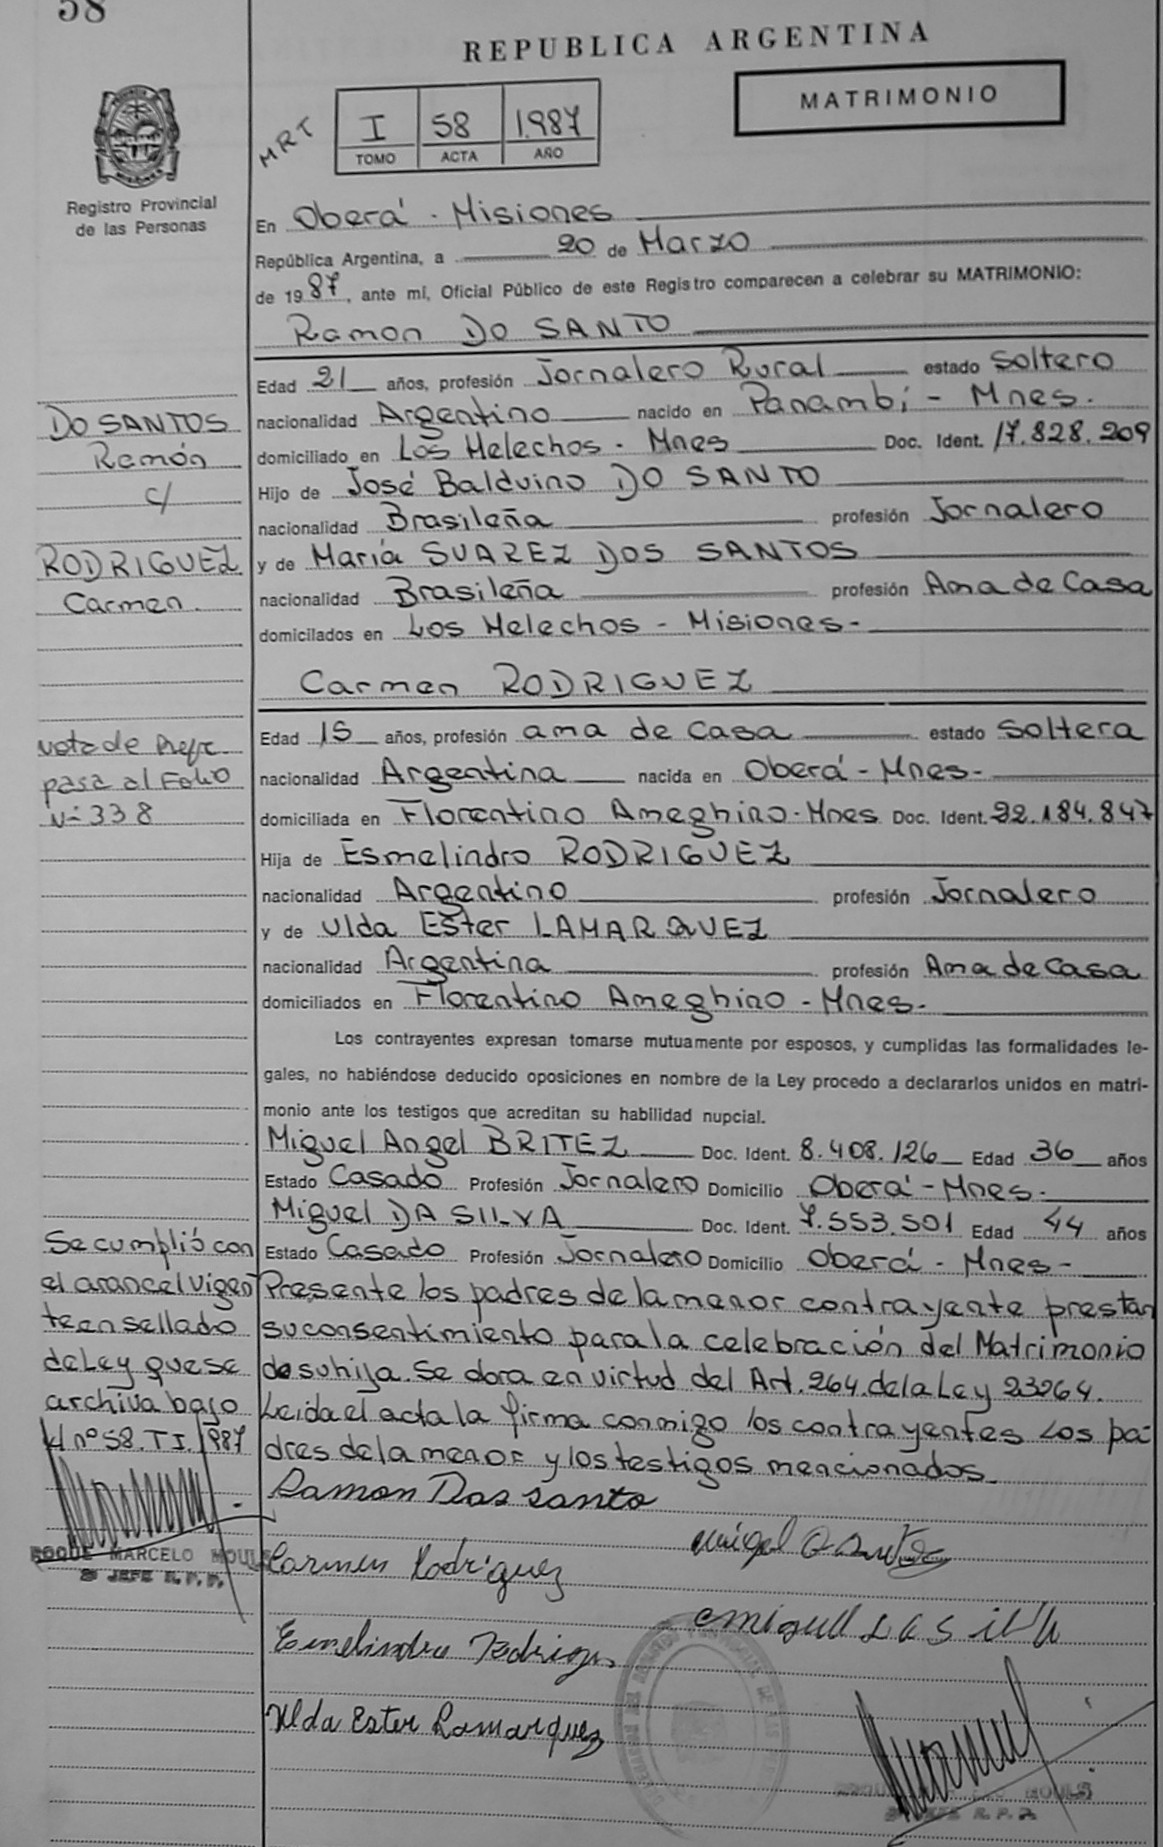 58
REPUBLICA ARGENTINA
MATRIMONIO
MRT
I 58 1.987
TOMO ACTA AÑO
Registro Provincial
de las Personas
En Oberá - Misiones
República Argentina, a 20 de Marzo
de 1987, ante mí, Oficial Público de este Registro comparecen a celebrar su MATRIMONIO:
Ramon DO SANTO
Edad 21 años, profesión Jornalero Rural estado Soltero
nacionalidad Argentino nacido en Panambí - Mnes.
domiciliado en Los Helechos - Mnes Doc. Ident. 17.828.209
Hijo de José Balduino DO SANTO
nacionalidad Brasileña profesión Jornalero
y de María SUAREZ DOS SANTOS
nacionalidad Brasileña profesión Ama de Casa
domicilados en Los Helechos - Misiones-
Carmen RODRIGUEZ
Edad 15 años, profesión ama de Casa estado Soltera
nacionalidad Argentina nacida en Oberá - Mnes-
domiciliada en Florentino Ameghino - Mnes Doc. Ident. 22.184.847
Hija de Esmelindro RODRIGUEZ
nacionalidad Argentino profesión Jornalero
y de Ulda Ester LAMARQUEZ
nacionalidad Argentina profesión Ama de Casa
domiciliados en Florentino Ameghino - Mnes-
Los contrayentes expresan tomarse mutuamente por esposos, y cumplidas las formalidades le-
gales, no habiéndose deducido oposiciones en nombre de la Ley procedo a declararlos unidos en matri-
monio ante los testigos que acreditan su habilidad nupcial.
Miguel Angel BRITEZ Doc. Ident. 8.408.126 Edad 36 años
Estado Casado Profesión Jornalero Domicilio Oberá - Mnes-
Miguel DA SILVA Doc. Ident. 7.553.501 Edad 44 años
Estado Casado Profesión Jornalero Domicilio Oberá - Mnes-
Presente los padres de la menor contrayente prestan
su consentimiento para la celebración del Matrimonio
de su hija. Se obra en virtud del Art. 264. de la Ley 23264.
Leida el acta la firma conmigo los contrayentes Los pa-
dres de la menor y los testigos mencionados.
Ramon Dos santo
Carmen Rodriguez
Esmelindro Rodrigu
Ulda Ester Lamarquez
miguel da silva
DO SANTOS
Ramón
c/
RODRIGUEZ
Carmen.
nota de Refr.
pasa al Folio
Nº 338
Se cumplió con
el arancel vigen
te en sellado
de Ley que se
archiva bajo
el nº 58. T I. 1987
ROQUE MARCELO MOULS
JEFE R. P. P.
MOULS
JEFE R. P. P.